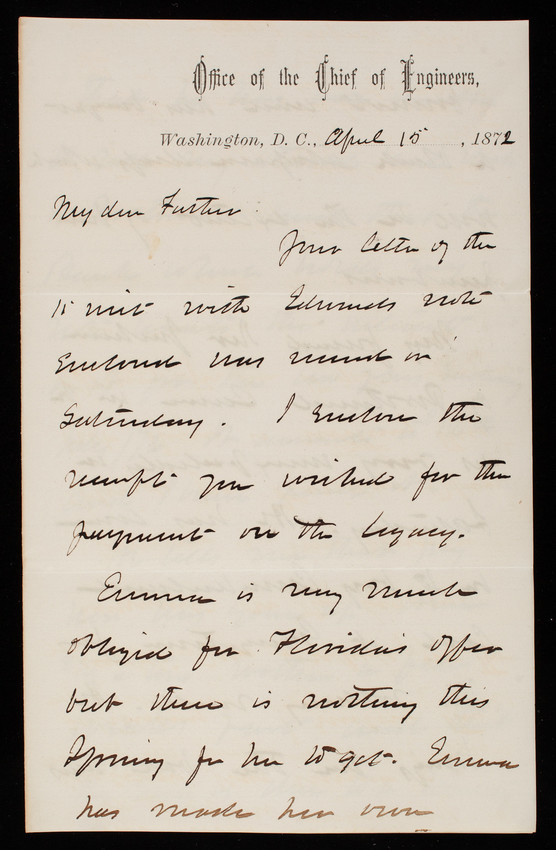 Office of the Chief of Engineers,
Washington, D. C., April 15, 1872
My dear Father:
Your letter of the
15 inst with Edwards note
Enclosed was received on
Saturday. I Enclose the
receipt you wished for the
payment on the legacy.
Emma is very much
obliged for Florida's offer
but there is nothing this
Spring for her to get. Emma
has made her own